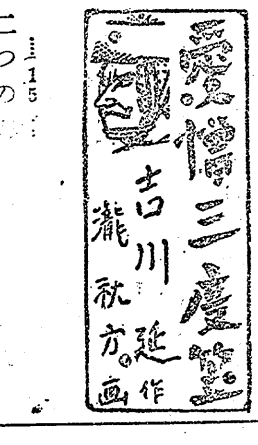 愛憎三度笠
吉川延作
瀧秋方画
15
二つの